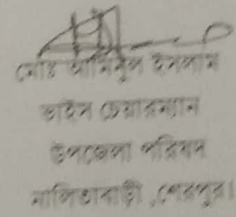 মোঃ আমিনুল ইসলাম
ভাইস চেয়ারম্যান
উপজেলা পরিষদ
নালিতাবাড়ী, শেরপুর।